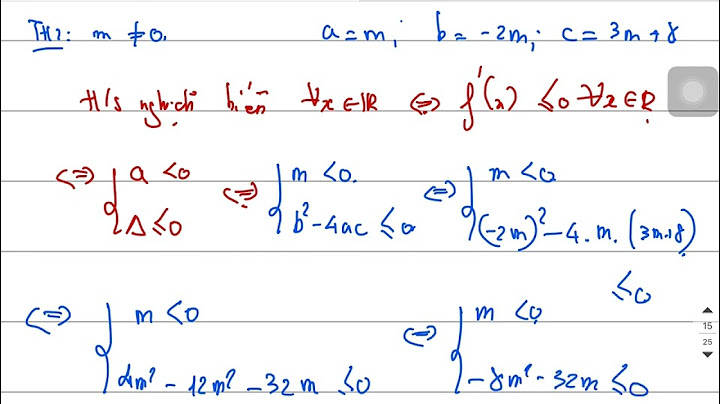 TH2: m ≠ 0. a = m; b = -2m; c = 3m + 8
H/s nghịch biến ∀x ∈ ℝ ⇔ f'(x) ≤ 0 ∀x ∈ ℝ
⇔ { a < 0 ⇔ { m < 0. ⇔ { m < 0
Δ ≤ 0 b² - 4ac ≤ 0 (-2m)² - 4. m. (3m+8)
≤ 0
⇔ { m < 0 ⇔ { m < 0
4m² - 12m² - 32m ≤ 0 -8m² - 32m ≤ 0
15
25